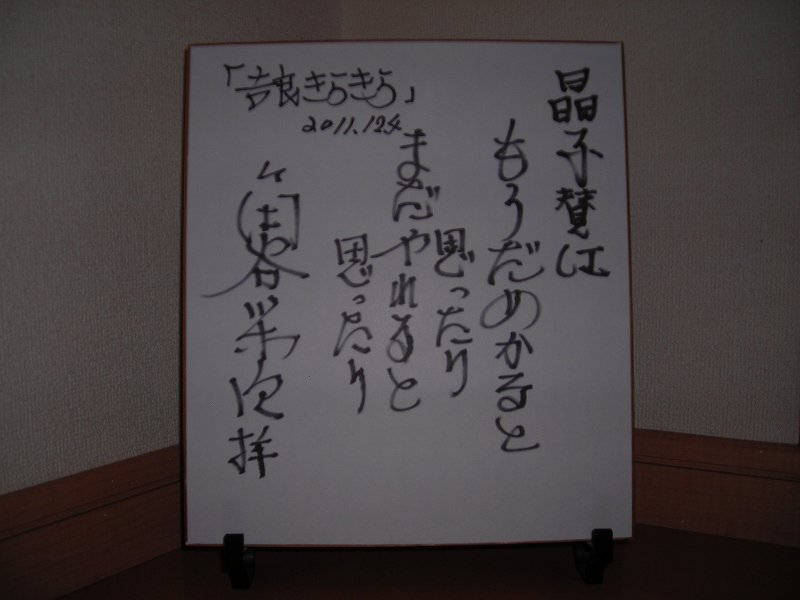 晶子賛江
もうだめかなと
思ったり
まだやれると
思ったり
「吉良きらきら」
2011.12.4
拝